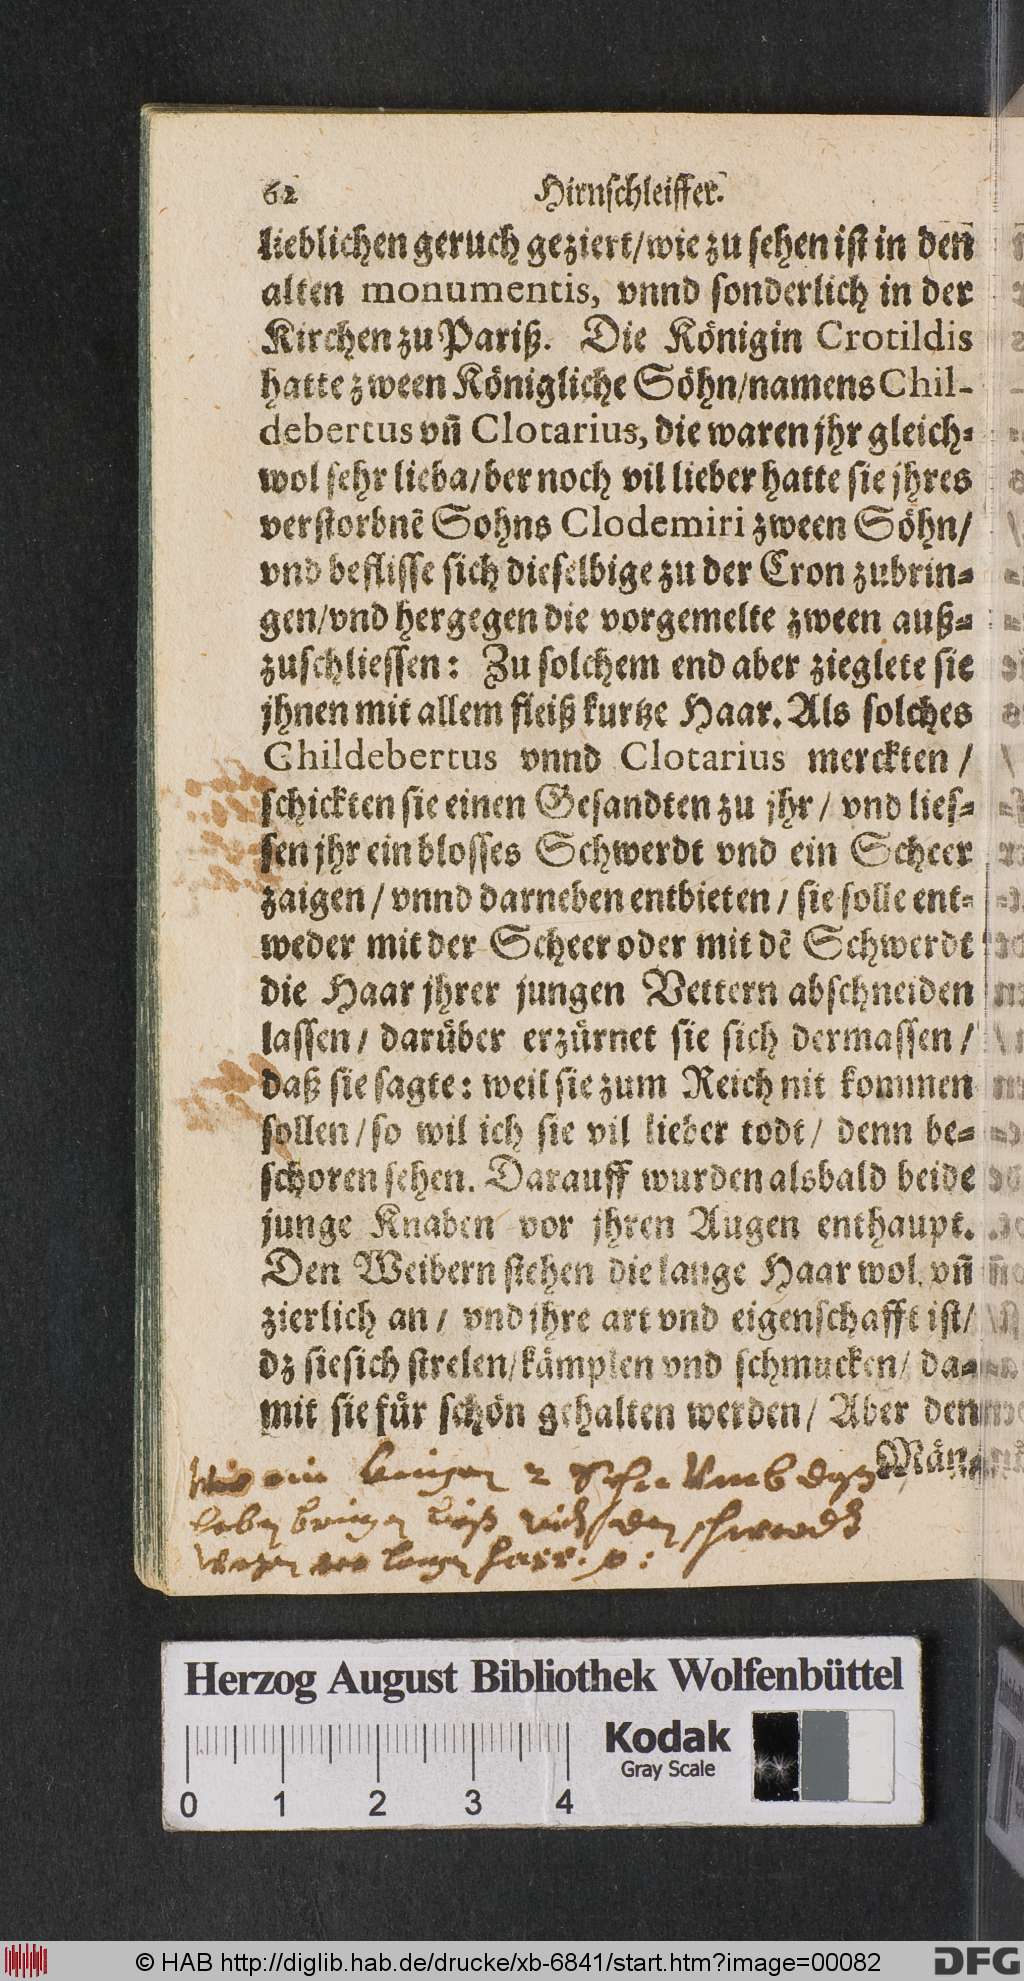 62 Hirnschleiffer.
lieblichen geruch geziert/wie zu sehen ist in den
alten monumentis, vnnd sonderlich in der
Kirchen zu Pariß. Die Königin Crotildis
hatte zween Königliche Söhn/namens Chil-
debertus vn̄ Clotarius, die waren jhr gleich-
wol sehr lieba/ber noch vil lieber hatte sie jhres
verstorbnē Sohns Clodemiri zween Söhn/
vnd beflisse sich dieselbige zu der Cron zubrin-
gen/vnd hergegen die vorgemelte zween auß-
zuschliessen: Zu solchem end aber zieglete sie
jhnen mit allem fleiß kurtze Haar. Als solches
Childebertus vnnd Clotarius merckten /
schickten sie einen Gesandten zu jhr / vnd lies-
sen jhr ein blosses Schwerdt vnd ein Scheer
zaigen / vnnd darneben entbieten / sie solle ent-
weder mit der Scheer oder mit dē Schwerdt
die Haar jhrer jungen Vettern abschneiden
lassen / darüber erzürnet sie sich dermassen /
daß sie sagte: weil sie zum Reich nit kommen
sollen / so wil ich sie vil lieber todt / denn be-
schoren sehen. Darauff wurden alsbald beide
junge Knaben vor jhren Augen enthaupt.
Den Weibern stehen die lange Haar wol, vn̄
zierlich an / vnd jhre art vnd eigenschafft ist/
dz sie sich strelen/kämplen vnd schmucken/ da-
mit sie für schön gehalten werden / Aber den
Män-
Herzog August Bibliothek Wolfenbüttel
Kodak
Gray Scale
0 1 2 3 4
© HAB http://diglib.hab.de/drucke/xb-6841/start.htm?image=00082
DFG